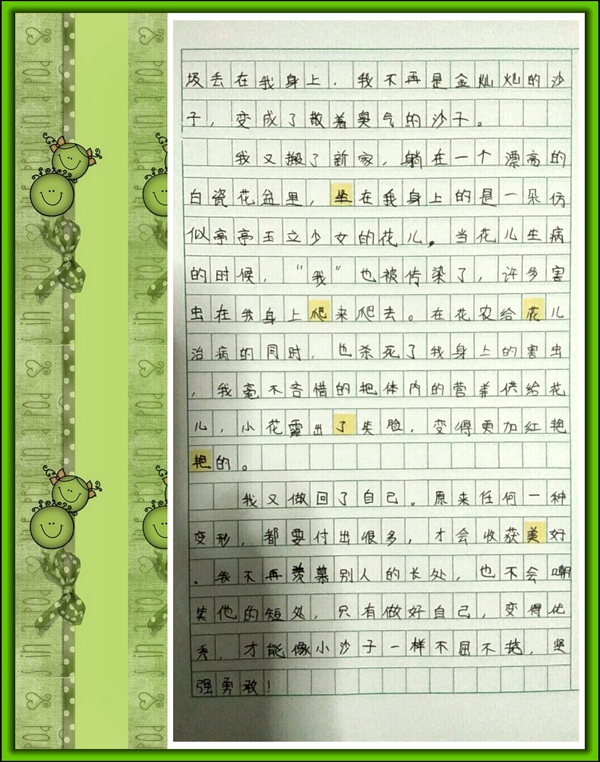 圾丢在我身上，我不再是金灿灿的沙
子，变成了散着臭气的沙子。
我又搬了新家，躺在一个漂亮的
白瓷花盆里，坐在我身上的是一朵仿
似亭亭玉立少女的花儿。当花儿生病
的时候，“我”也被传染了，许多害
虫在我身上爬来爬去。在花农给花儿
治病的同时，也杀死了我身上的害虫
，我毫不吝惜的把体内的营养供给花
儿，小花露出了笑脸，变得更加红艳
艳的。
我又做回了自己。原来任何一种
变形，都要付出很多，才会收获美好
。我不再羡慕别人的长处，也不会嘲
笑他的短处，只有做好自己，变得优
秀，才能像小沙子一样不屈不挠，坚
强勇敢！